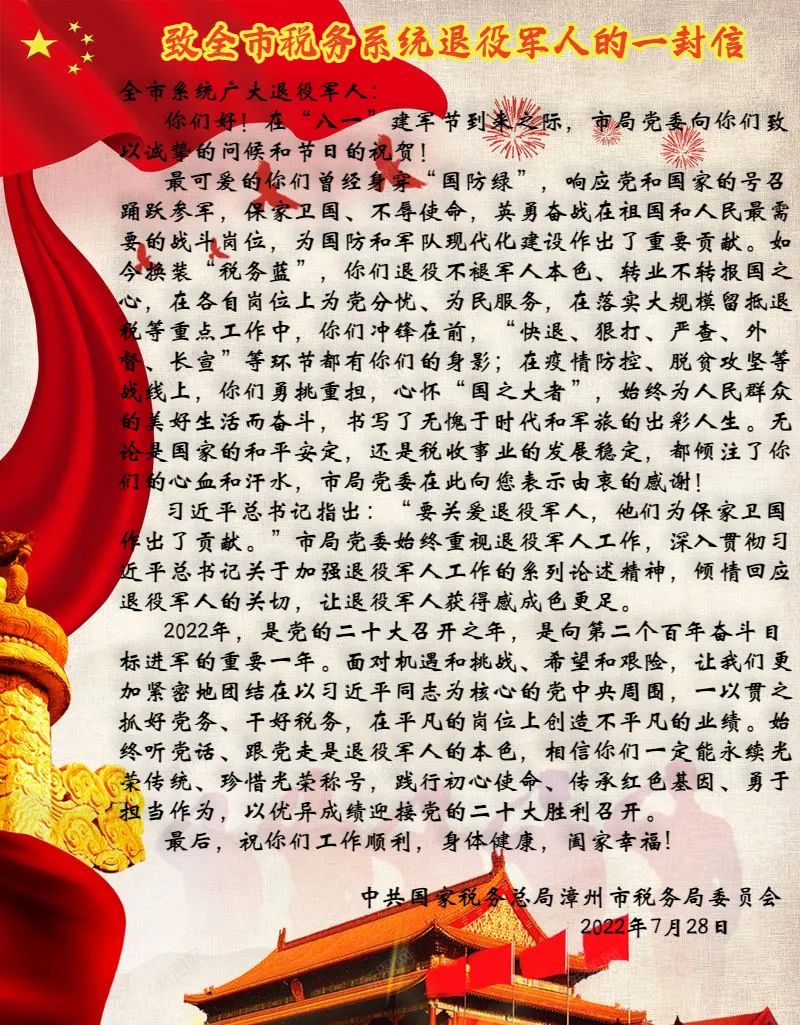 致全市税务系统退役军人的一封信
全市系统广大退役军人：
你们好！在“八一”建军节到来之际，市局党委向你们致
以诚挚的问候和节日的祝贺！
最可爱的你们曾经身穿“国防绿”，响应党和国家的号召
踊跃参军，保家卫国、不辱使命，英勇奋战在祖国和人民最需
要的战斗岗位，为国防和军队现代化建设作出了重要贡献。如
今换装“税务蓝”，你们退役不褪军人本色、转业不转报国之
心，在各自岗位上为党分忧、为民服务，在落实大规模留抵退
税等重点工作中，你们冲锋在前，“快退、狠打、严查、外
督、长宣”等环节都有你们的身影；在疫情防控、脱贫攻坚等
战线上，你们勇挑重担，心怀“国之大者”，始终为人民群众
的美好生活而奋斗，书写了无愧于时代和军旅的出彩人生。无
论是国家的和平安定，还是税收事业的发展稳定，都倾注了你
们的心血和汗水，市局党委在此向您表示由衷的感谢！
习近平总书记指出：“要关爱退役军人，他们为保家卫国
作出了贡献。”市局党委始终重视退役军人工作，深入贯彻习
近平总书记关于加强退役军人工作的系列论述精神，倾情回应
退役军人的关切，让退役军人获得感成色更足。
2022年，是党的二十大召开之年，是向第二个百年奋斗目
标进军的重要一年。面对机遇和挑战、希望和艰险，让我们更
加紧密地团结在以习近平同志为核心的党中央周围，一以贯之
抓好党务、干好税务，在平凡的岗位上创造不平凡的业绩。始
终听党话、跟党走是退役军人的本色，相信你们一定能永续光
荣传统、珍惜光荣称号，践行初心使命、传承红色基因、勇于
担当作为，以优异成绩迎接党的二十大胜利召开。
最后，祝你们工作顺利，身体健康，阖家幸福！
中共国家税务总局漳州市税务局委员会
2022年7月28日